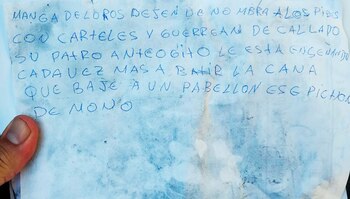 MANGA DE LOROS DEJEN DE NOMBRA A LOS PIBES
CON CARTELES Y GUERREAN DE CALLADO
SU PATRO ANTEOGITO LE ESTA ENSEÑANDO
CADAVEZ MAS A BATIR LA CANA
QUE BAJE A UN PABELLON ESE PICHON
DE MONO